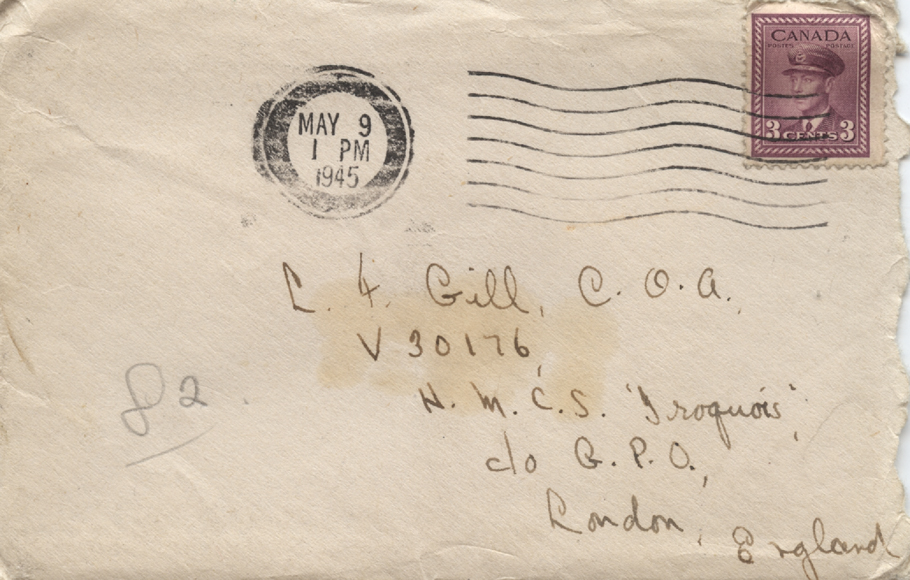 CANADA
POSTES POSTAGE
3 CENTS 3
MAY 9
1 PM
1945
L. F. Gill, C. O. A.
V 30176
H. M. C. S. 'Iroquois'
c/o G. P. O.,
London, England
82